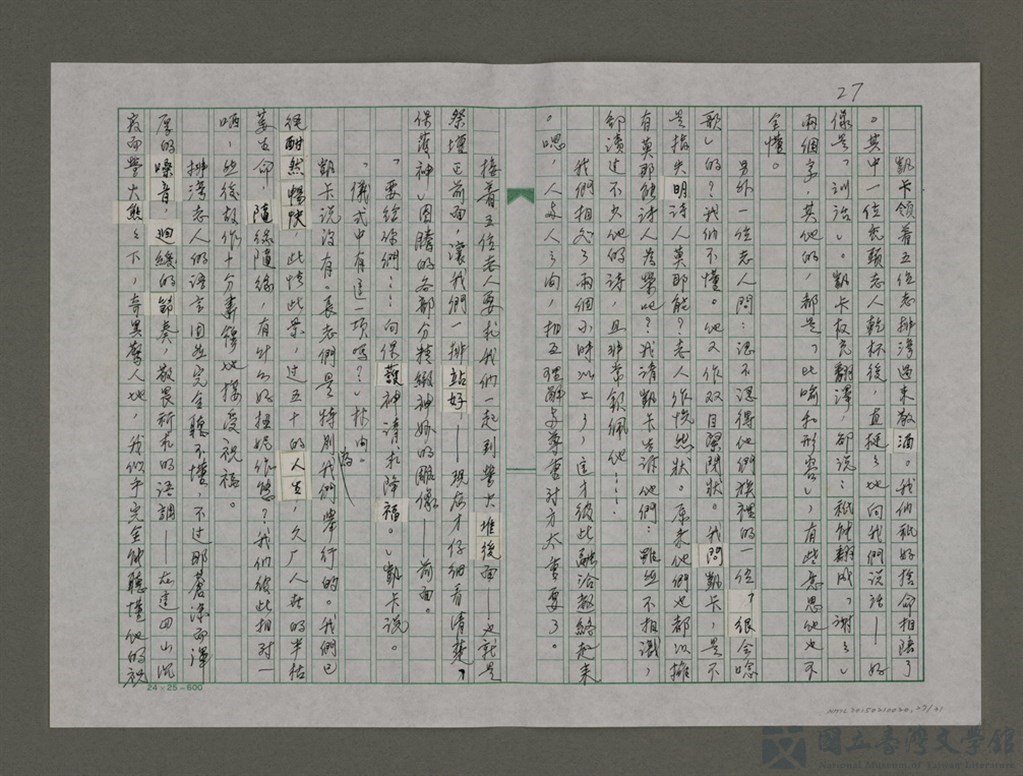 27
凱卡領着五位老排灣過來敬酒。我們祇好捨命相陪了
。其中一位禿頭老人乾杯後，直挺挺地向我們說話——好
像是「訓話」。凱卡权充翻譯，卻說：祇能翻成「謝謝」
兩個字，其他的，都是「比喻和形容」，有些意思他也不
全懂。
另外一位老人問：認不認得他們族裡的一位「很會唸
歌」的？我們不懂。他又作双目緊閉狀。我問凱卡，是不
是指失明詩人莫那能？老人作恍然狀。原來他們也都以擁
有莫那能詩人為榮呢？我請凱卡告訴他們：雖然不相識，
卻讀过不少他的詩，且非常欽佩他……
我們相处了兩個小時以上了，這才彼此融洽熱絡起來
。嗯，人与人之间，相互理解与尊重对方太重要了。
接着五位老人要求我們一起到營火堆後面——也就是
祭壇正前面，讓我們一排站好，——現在才仔細看清楚，
保護神」图騰的各部分精緻神妙的雕像——前面。
「要給你們……向保護神請求降福。」凱卡說。
「儀式中有這一項嗎？」林问。
凱卡說沒有。長老們是特別為我們舉行的。我們已
經酣然暢快，此情此景，过五十的人生，久广人世的半枯
萎生命，隨緣隨緣，有什么好扭妮作態？我們彼此相对一
哂，然後故作十分肅穆地接受祝福。
排灣老人的語言固然完全聽不懂，不过那蒼涼而渾
厚的嗓音，迴緩的節奏，敬畏祈求的語調——在這四山沉
寂而營火熊熊下，奇異驚人地，我似乎完全能聽懂他的祝
24×25=600
NMTL20150210020,27/41
國立臺灣文學館
National Museum of Taiwan Literature